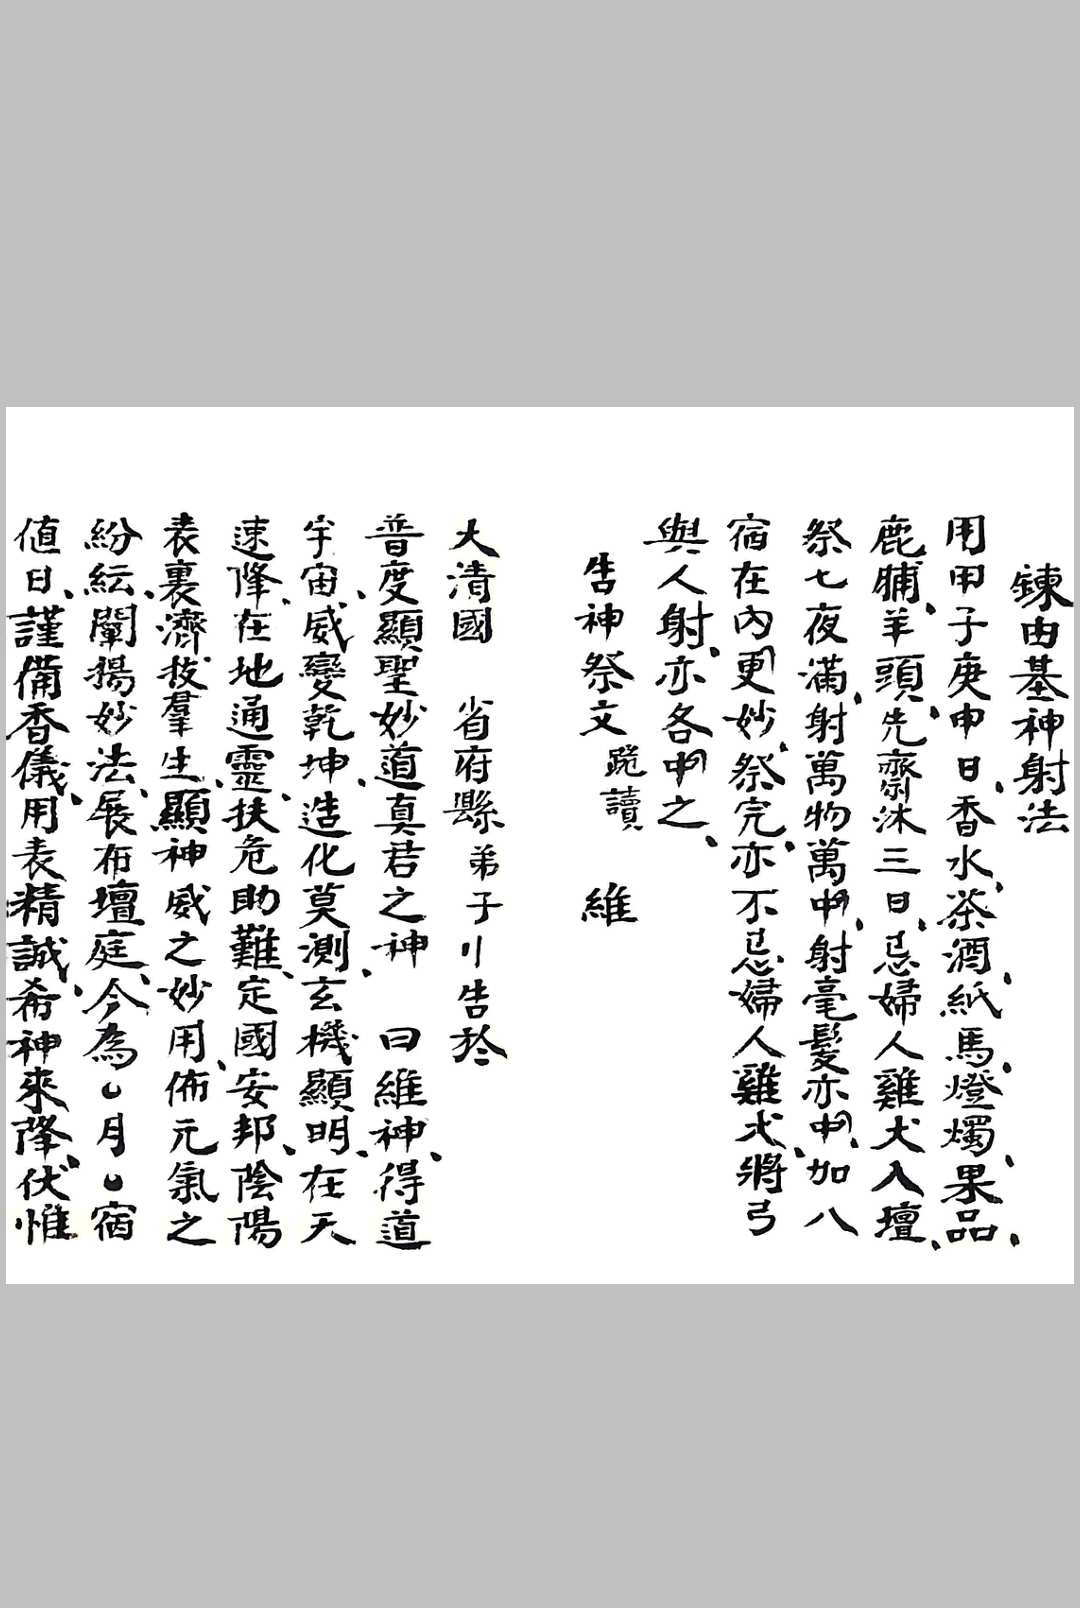 鍊由基神射法
用甲子庚申日、香水、茶酒、紙馬、燈燭、果品、
鹿脯、羊頭、先齋沐三日、忌婦人雞犬入壇、
祭七夜滿、射萬物萬中、射毫髮亦中、加八
宿在內更妙、祭完、亦不忌婦人雞犬、將弓
與人射、亦各中之、
告神祭文 跪讀 維
大清國 省府縣弟子 告於
普度顯聖妙道真君之神、曰維神、得道
宇宙、威變乾坤、造化莫測玄機顯明、在天
速降、在地通靈、扶危助難、定國安邦、陰陽
表裏濟拔羣生、顯神威之妙用、佈元氣之
紛紜、闡揚妙法、展布壇庭、今為 月 宿
值日、謹備香儀、用表精誠、希神來降、伏惟